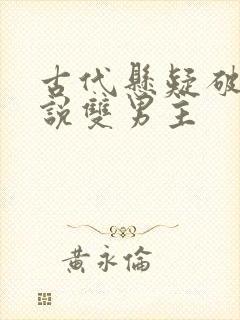 古代懸疑破
說雙男主
黃永倫